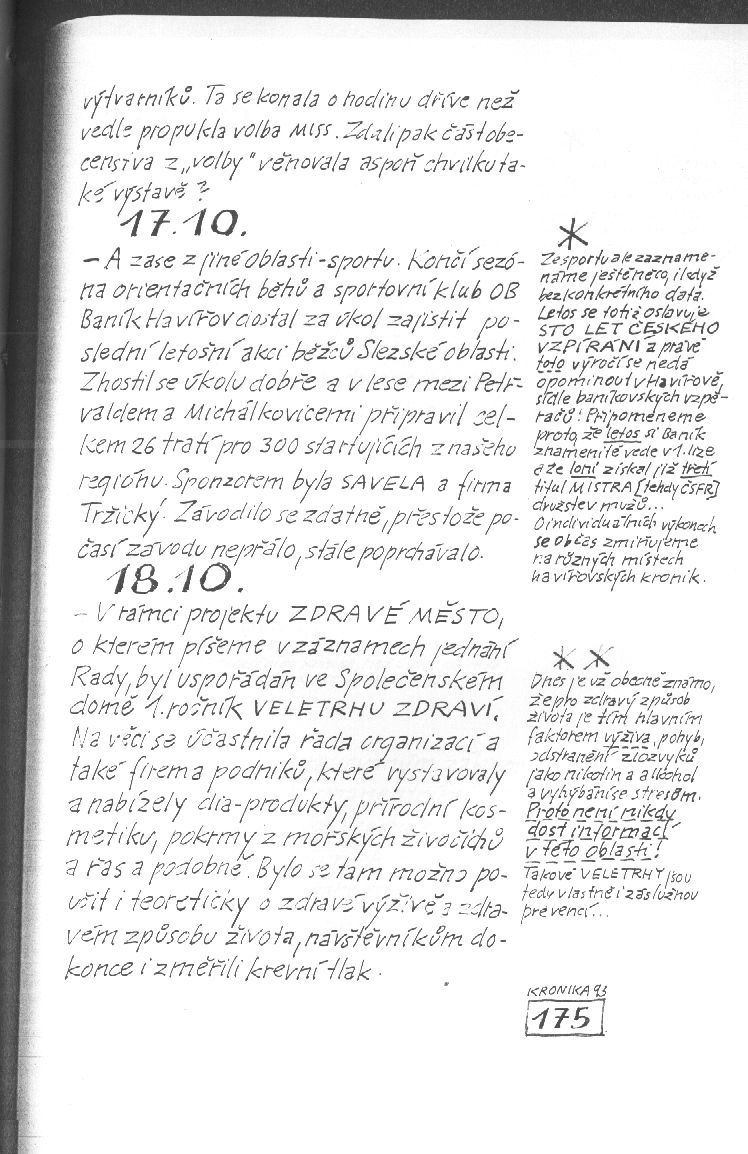 výtvarníků. Ta se konala o hodinu dříve než
vedle propukla volba MISS. Zdalipak část obe-
censtva z „volby" věnovala aspoň chvilku ta-
ké výstavě?
17.10.
– A zase z jiné oblasti - sportu. Končí sezó-
na orientačních běhů a sportovní klub OB
Baník Havířov dostal za úkol zajistit po-
slední letošní akci běžců Slezské oblasti.
Zhostil se úkolu dobře a v lese mezi Petř-
valdem a Michálkovicemi připravil cel-
kem 26 tratí pro 300 startujících z našeho
regiónu. Sponzorem byla SAVELA a firma
Tržický. Závodilo se zdatně, přestože po-
časí závodu nepřálo, stále poprchávalo.
18.10.
– V rámci projektu ZDRAVÉ MĚSTO,
o kterém píšeme v záznamech jednání
Rady, byl uspořádán ve Společenském
domě 1. ročník VELETRHU ZDRAVÍ.
Na věci se účastnila řada organizací a
také firem a podniků, které vystavovaly
a nabízely dia-produkty, přírodní kos-
metiku, pokrmy z mořských živočichů
a řas a podobně. Bylo se tam možno po-
učit i teoreticky o zdravé výživě a zdra-
vém způsobu života, návštěvníkům do-
konce i změřili krevní tlak.
*
Ze sportu ale zazname-
náme ještě něco, i když
bez konkrétního data.
Letos se totiž oslavuje
STO LET ČESKÉHO
VZPÍRÁNÍ a právě
toto výročí se nedá
opominout v Havířově,
sídle baníkovských vzpě-
račů! Připomeneme
proto, že letos si Baník
znamenitě vede v 1. lize
a že loni získal již třetí
titul MISTRA [tehdy ČSFR]
družstev mužů...
O individuálních výkonech
se občas zmiňujeme
na různých místech
havířovských kronik.
* *
Dnes je už obecně známo,
že pro zdravý způsob
života je tím hlavním
faktorem výživa, pohyb,
odstranění zlozvyků
jako nikotin a alkohol
a vyhýbání se stresům.
Proto není nikdy
dost informací
v této oblasti!
Takové VELETRHY jsou
tedy vlastně i záslužnou
prevencí...
KRONIKA 93
175